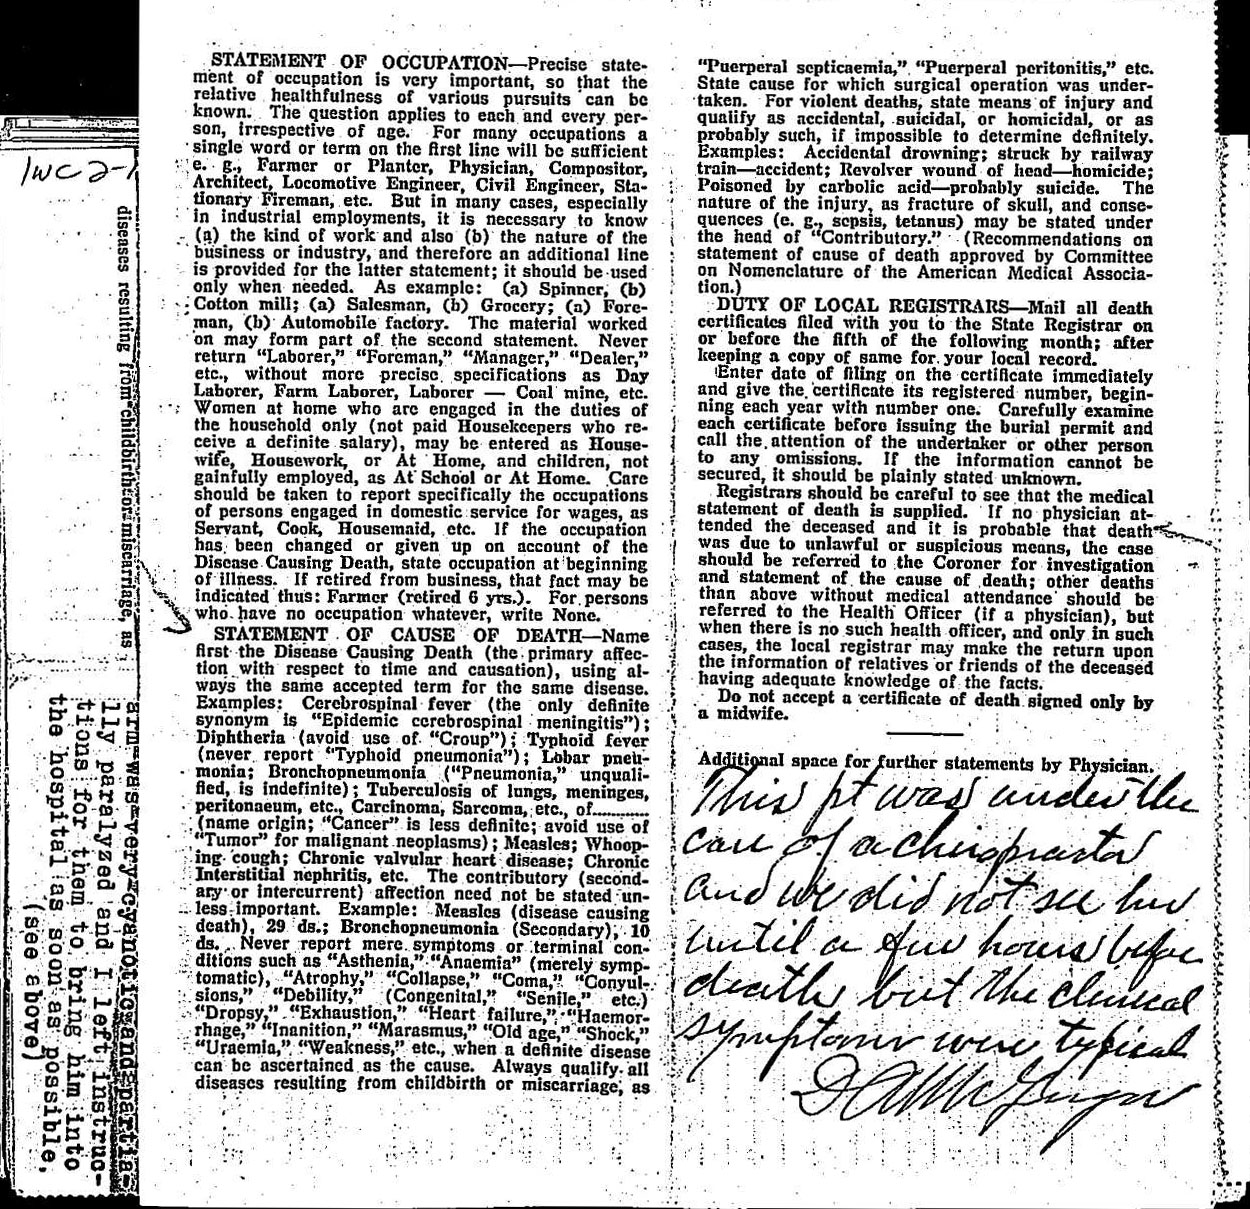 STATEMENT OF OCCUPATION—Precise state-
ment of occupation is very important, so that the
relative healthfulness of various pursuits can be
known. The question applies to each and every per-
son, irrespective of age. For many occupations a
single word or term on the first line will be sufficient
e. g., Farmer or Planter, Physician, Compositor,
Architect, Locomotive Engineer, Civil Engineer, Sta-
tionary Fireman, etc. But in many cases, especially
in industrial employments, it is necessary to know
(a) the kind of work and also (b) the nature of the
business or industry, and therefore an additional line
is provided for the latter statement; it should be used
only when needed. As example: (a) Spinner, (b)
Cotton mill; (a) Salesman, (b) Grocery; (a) Fore-
man, (b) Automobile factory. The material worked
on may form part of the second statement. Never
return "Laborer," "Foreman," "Manager," "Dealer,"
etc., without more precise specifications as Day
Laborer, Farm Laborer, Laborer — Coal mine, etc.
Women at home who are engaged in the duties of
the household only (not paid Housekeepers who re-
ceive a definite salary), may be entered as House-
wife, Housework, or At Home, and children, not
gainfully employed, as At School or At Home. Care
should be taken to report specifically the occupations
of persons engaged in domestic service for wages, as
Servant, Cook, Housemaid, etc. If the occupation
has been changed or given up on account of the
Disease Causing Death, state occupation at beginning
of illness. If retired from business, that fact may be
indicated thus: Farmer (retired 6 yrs.). For persons
who have no occupation whatever, write None.
STATEMENT OF CAUSE OF DEATH—Name
first the Disease Causing Death (the primary affec-
tion with respect to time and causation), using al-
ways the same accepted term for the same disease.
Examples: Cerebrospinal fever (the only definite
synonym is "Epidemic cerebrospinal meningitis");
Diphtheria (avoid use of "Croup"); Typhoid fever
(never report "Typhoid pneumonia"); Lobar pneu-
monia; Bronchopneumonia ("Pneumonia," unquali-
fied, is indefinite); Tuberculosis of lungs, meninges,
peritonaeum, etc., Carcinoma, Sarcoma, etc., of............
(name origin; "Cancer" is less definite; avoid use of
"Tumor" for malignant neoplasms); Measles; Whoop-
ing cough; Chronic valvular heart disease; Chronic
Interstitial nephritis, etc. The contributory (second-
ary or intercurrent) affection need not be stated un-
less important. Example: Measles (disease causing
death), 29 ds.; Bronchopneumonia (Secondary), 10
ds. Never report mere symptoms or terminal con-
ditions such as "Asthenia," "Anaemia" (merely symp-
tomatic), "Atrophy," "Collapse," "Coma," "Convul-
sions," "Debility," (Congenital," "Senile," etc.)
"Dropsy," "Exhaustion," "Heart failure," "Haemor-
rhage," "Inanition," "Marasmus," "Old age," "Shock,"
"Uraemia," "Weakness," etc., when a definite disease
can be ascertained as the cause. Always qualify all
diseases resulting from childbirth or miscarriage, as
"Puerperal septicaemia," "Puerperal peritonitis," etc.
State cause for which surgical operation was under-
taken. For violent deaths, state means of injury and
qualify as accidental, suicidal, or homicidal, or as
probably such, if impossible to determine definitely.
Examples: Accidental drowning; struck by railway
train—accident; Revolver wound of head—homicide;
Poisoned by carbolic acid—probably suicide. The
nature of the injury, as fracture of skull, and conse-
quences (e. g., sepsis, tetanus) may be stated under
the head of "Contributory." (Recommendations on
statement of cause of death approved by Committee
on Nomenclature of the American Medical Associa-
tion.)
DUTY OF LOCAL REGISTRARS—Mail all death
certificates filed with you to the State Registrar on
or before the fifth of the following month; after
keeping a copy of same for your local record.
Enter date of filing on the certificate immediately
and give the certificate its registered number, begin-
ning each year with number one. Carefully examine
each certificate before issuing the burial permit and
call the attention of the undertaker or other person
to any omissions. If the information cannot be
secured, it should be plainly stated unknown.
Registrars should be careful to see that the medical
statement of death is supplied. If no physician at-
tended the deceased and it is probable that death
was due to unlawful or suspicious means, the case
should be referred to the Coroner for investigation
and statement of the cause of death; other deaths
than above without medical attendance should be
referred to the Health Officer (if a physician), but
when there is no such health officer, and only in such
cases, the local registrar may make the return upon
the information of relatives or friends of the deceased
having adequate knowledge of the facts.
Do not accept a certificate of death signed only by
a midwife.
Additional space for further statements by Physician.
This pt was under the
care of a chiropractor
and we did not see her
until a few hours before
death but the clinical
symptoms were typical
diseases resulting from childbirth or miscarriage, as
arm was very cyanotic and partia-
lly paralyzed and I left instruc-
tions for them to bring him into
the hospital as soon as possible,
(see above)